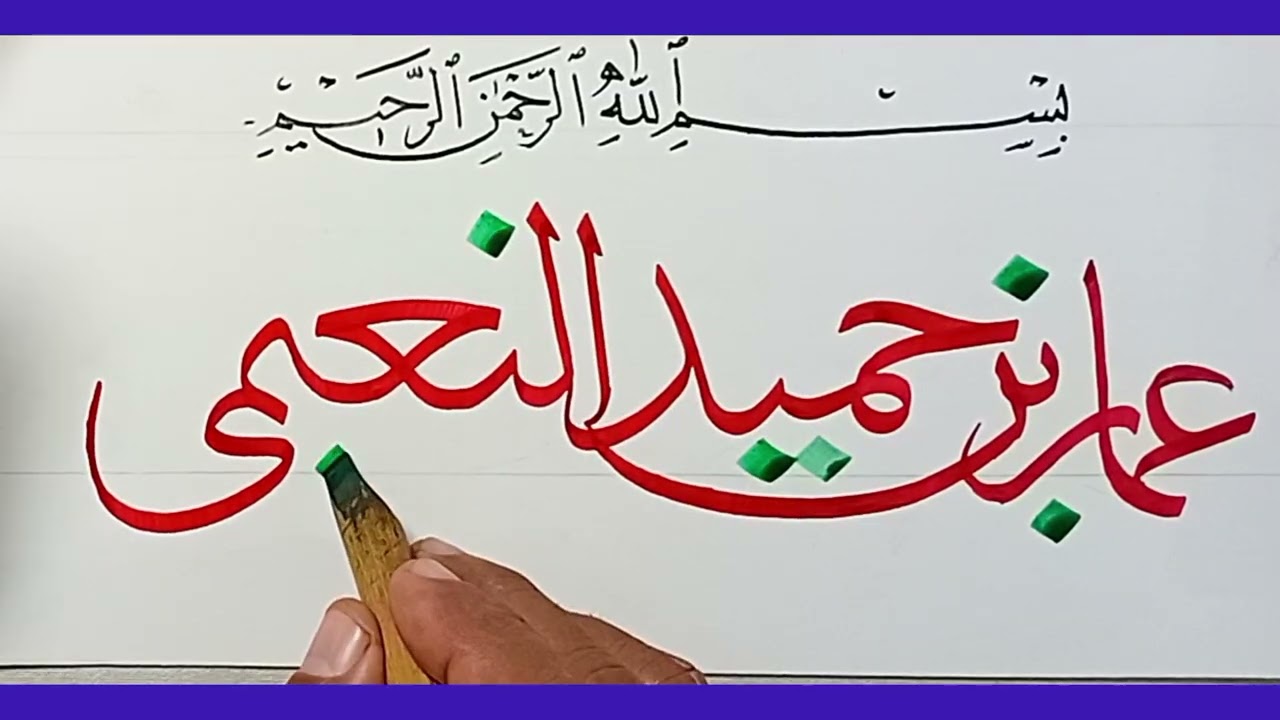 بِسْمِ ٱللَّهِ ٱلرَّحْمَٰنِ ٱلرَّحِيمِ
عمار بن حميد النعيمى